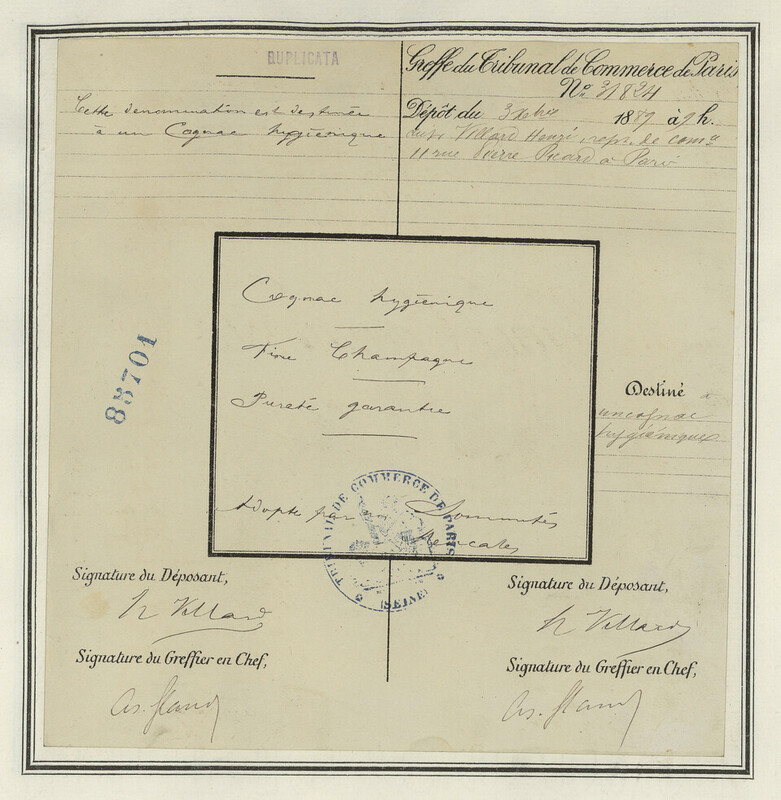 DUPLICATA
Cette dénomination est destinée
à un Cognac hygiénique
Greffe du Tribunal de Commerce de Paris
No 31824
Dépôt du 3 Xbre 1889 à 9 h.
Villard Henri, repr. de com
11 rue Pierre Picard à Paris
Cognac hygiénique
Fine Champagne
Pureté garantie
Adopté par Sommités
Médicales
85701
Destiné à
un cognac
hygiénique
TRIBUNAL DE COMMERCE DE PARIS
(SEINE)
Signature du Déposant,
h Villard
Signature du Greffier en Chef,
Signature du Déposant,
h Villard
Signature du Greffier en Chef,